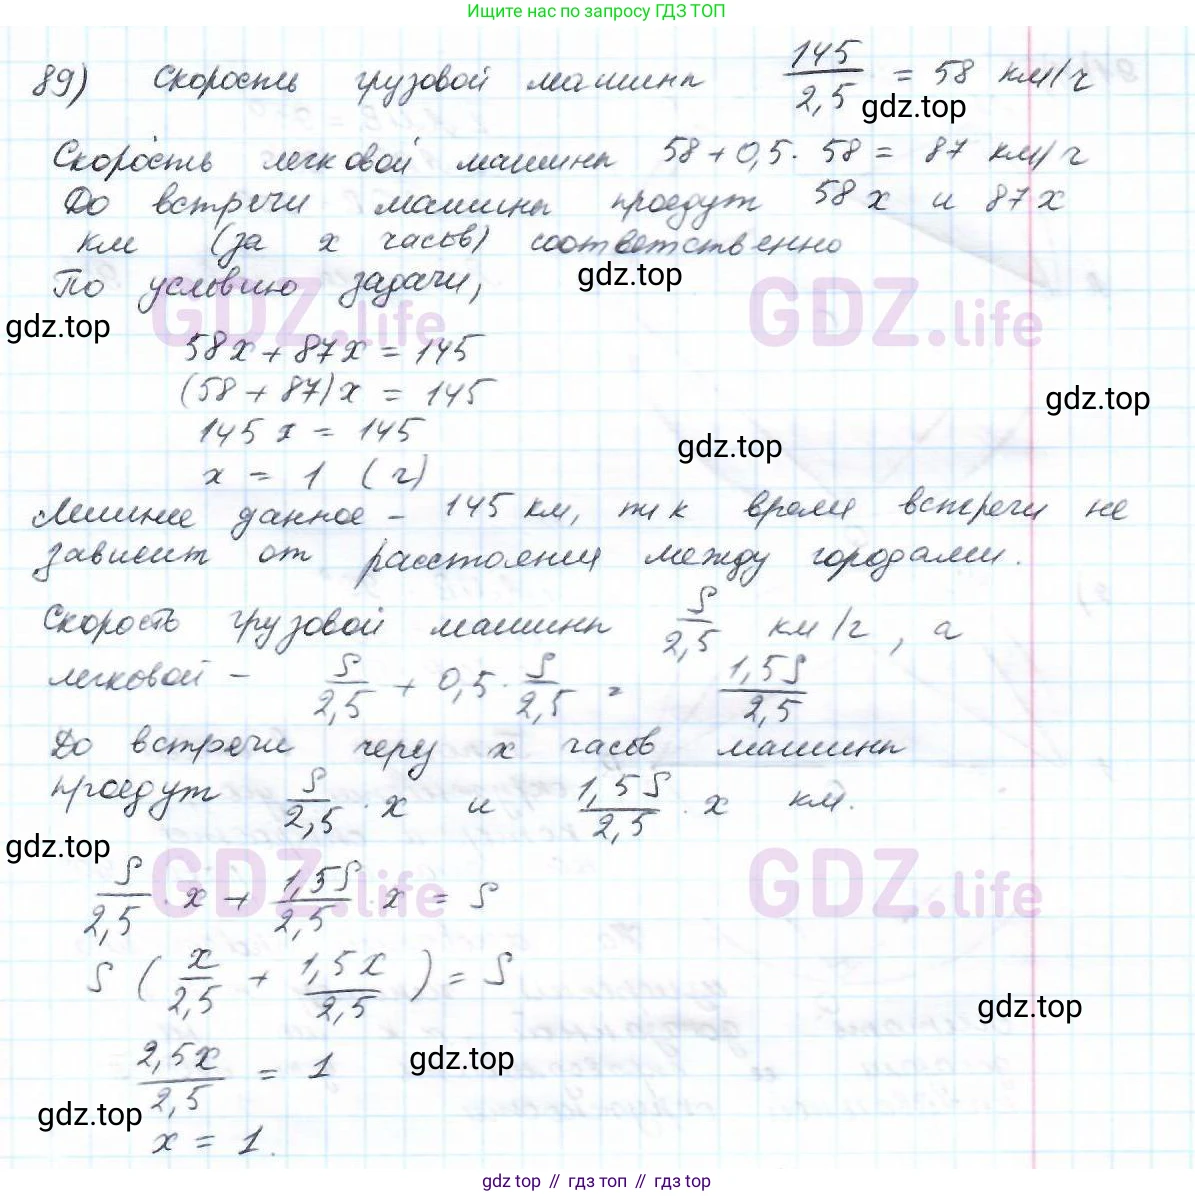 Ищите нас по запросу ГДЗ ТОП
89) Скорость грузовой машины 145/2,5 = 58 км/ч
gdz.top
Скорость легковой машины 58 + 0,5 · 58 = 87 км/ч
До встречи машины проедут 58x и 87x
км (за x часов) соответственно
gdz.top
По условию задачи,
GDZ.life GDZ.life
gdz.top
58x + 87x = 145
(58 + 87)x = 145
gdz.top
145x = 145
gdz.top
x = 1 (ч)
Лишнее данное – 145 км, т к время встречи не
зависит от расстояния между городами.
Скорость грузовой машины S/2,5 км/ч, а
легковой – S/2,5 + 0,5 · S/2,5 = 1,5S/2,5
До встречи через x часов машины
проедут S/2,5 · x и 1,5S/2,5 · x км.
gdz.top
GDZ.life GDZ.life
S/2,5 · x + 1,5S/2,5 · x = S
S (x/2,5 + 1,5x/2,5) = S
gdz.top
2,5x/2,5 = 1
gdz.top
gdz.top
x = 1.
gdz top // гдз топ // gdz top